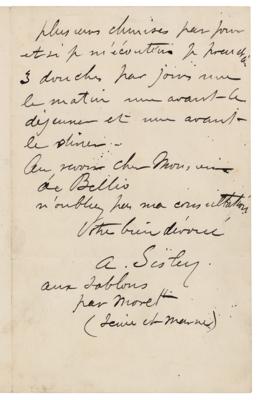 plusieurs chemises par jour
et si je m'écoutais je prendrai
3 douches par jour une
le matin une avant le
déjeuner et une avant
le diner.
Au revoir cher Monsieur
de Bellio
n'oubliez pas ma consultation
Votre bien dévoué
A. Sisley
aux Sablons
par Moret
(Seine et Marne)